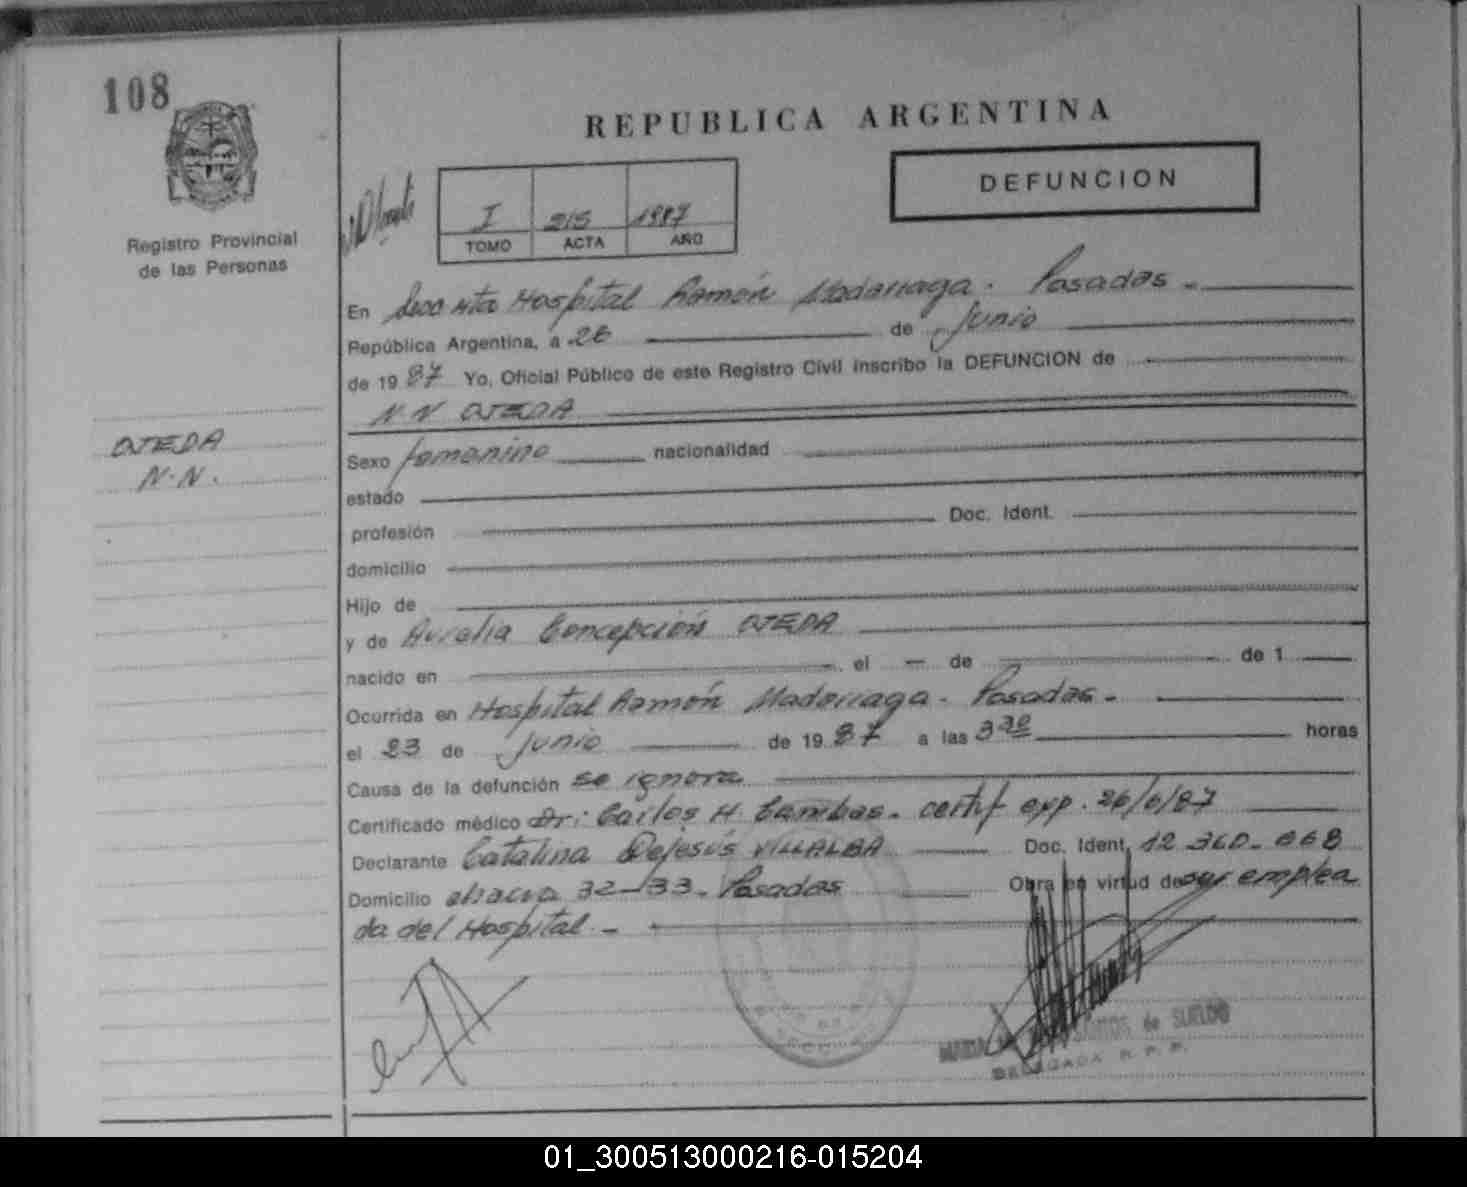 108
REPUBLICA ARGENTINA
DEFUNCION
I 215 1987
TOMO ACTA AÑO
Registro Provincial
de las Personas
En Secc 4ta Hospital Ramón Madariaga. Posadas -
República Argentina, a 26 de Junio
de 1987 Yo, Oficial Público de este Registro Civil inscribo la DEFUNCION de
N N OJEDA
OJEDA
N.N.
Sexo femenino nacionalidad
estado
profesión Doc. Ident.
domicilio
Hijo de
y de Aurelia Concepción OJEDA
nacido en el — de de 1
Ocurrida en Hospital Ramón Madariaga - Posadas -
el 23 de Junio de 1987 a las 3 30 horas
Causa de la defunción se ignora
Certificado médico Dr: Carlos H. Cambas - certif exp. 26/6/87
Declarante Catalina Dejesús VILLALBA Doc. Ident. 12.360.668
Domicilio chacra 32-33. Posadas Obra en virtud de ser emplea
da del Hospital. -
MARIA SANTOS de SUELDO
DELEGADA R. P. P.
01_300513000216-015204